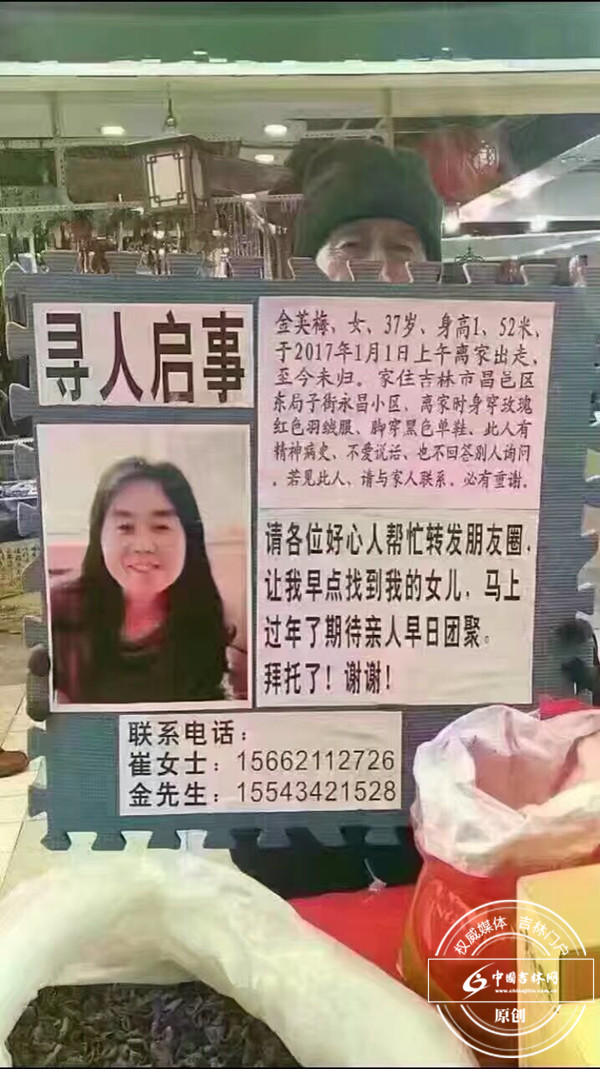 寻人启事
金芙梅、女、37岁、身高1、52米、
于2017年1月1日上午离家出走、
至今未归。家住吉林市昌邑区
东局子街永昌小区、离家时身穿玫瑰
红色羽绒服、脚穿黑色单鞋、此人有
精神病史、不爱说话、也不回答别人询问
。若见此人、请与家人联系、必有重谢。
请各位好心人帮忙转发朋友圈，
让我早点找到我的女儿，马上
过年了期待亲人早日团聚。
拜托了！谢谢！
联系电话：
崔女士：15662112726
金先生：15543421528
权威媒体 吉林门户
中国吉林网
原创